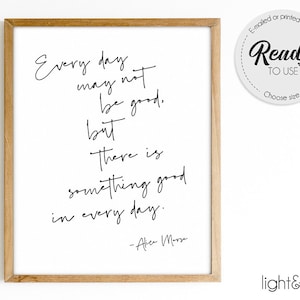 Every day
may not
be good,
but
there is
something good
in every day.
-Alice Morse
E-mailed or printed
Ready
TO USE
Choose size
light&